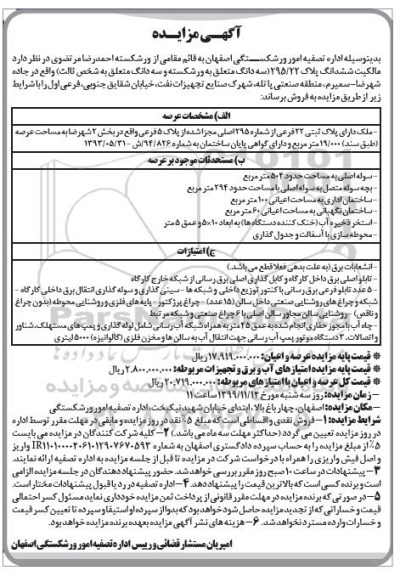 آگهـی مزایـده
بدینوسیله اداره تصفیه امور ورشکستگی اصفهان به قائم مقامی از ورشکسته احمدرضا مرتضوی در نظر دارد
مالکیت ششدانگ پلاک ۲۹۵/۲۲ (سه دانگ متعلق به ورشکسته و سه دانگ متعلق به شخص ثالث) واقع در جاده
شهرضا-سمیرم، منطقه صنعتی پاتله، شهرک صنایع تجهیزات نفت، خیابان شقایق جنوبی، فرعی اول را با شرایط
زیر از طریق مزایده به فروش برساند:
الف) مشخصات عرصه
- ملک دارای پلاک ثبتی ۲۲ فرعی از شماره ۲۹۵ اصلی مجزا شده از پلاک ۵ فرعی واقع در بخش ۲ شهرضا به مساحت عرصه
(طبق سند) ۱۹/۰۰۰ متر مربع و دارای گواهی پایان ساختمان به شماره ۹۴/۸۲۶/ش - ۱۳۹۳/۰۵/۳۱
ب) مستحدثات موجود بر عرصه
- سوله اصلی به مساحت حدود ۵۰۴ متر مربع
- بچه سوله متصل به سوله اصلی با مساحت حدود ۲۹۴ متر مربع
- ساختمان اداری به مساحت اعیانی ۱۰۰ متر مربع
- ساختمان نگهبانی به مساحت اعیانی ۶۰ متر مربع
- استخر ذخیره آب (خنک کننده دستگاه ها) به ابعاد ۱۰×۵ و عمق ۵ متر
- محوطه سازی با آسفالت و جدول گذاری
ج) امتیازات
- انشعابات برق (به علت بدهی فعلا قطع می باشد.)
- تابلو اصلی برق داخل کارگاه و کابل گذاری اصلی برق رسانی از شبکه خارج کارگاه
- ۵ عدد تابلو فرعی برق رسانی با کنتور توزیع داخلی و شبکه ها - سینی گذاری و سوله گذاری انتقال برق داخلی کارگاه -
شبکه و چراغ های روشنایی صنعتی داخل سالن (۱۵ عدد) - چراغ پرژکتور - پایه های فلزی و روشنایی محوطه (بدون چراغ
و ناقص) - روشنایی سالن مجاور سالن اصلی با ۶ چراغ صنعتی و شبکه مرتبط
- چاه آب با مجوز حفاری انجام شده به عمق ۲۵ متر به همراه شبکه آب رسانی شامل لوله گذاری و پمپ های مستهلک، شناور
و اتصالات، ۳ دستگاه موتور پمپ آب رسانی جهت انتقال آب به سالن ها و مخزن فلزی (گالوانیزه) ۵۰۰۰ لیتری
* قیمت پایه مزایده عرصه و اعیان: ۱۷.۹۱۹.۰۰۰.۰۰۰ ریال
* قیمت پایه مزایده امتیازهای آب و برق و تجهیزات مربوطه: ۲.۸۰۰.۰۰۰.۰۰۰ ریال
* قیمت کل عرصه و اعیان با امتیازهای مربوطه: ۲۰.۷۱۹.۰۰۰.۰۰۰ ریال
- زمان مزایده: روز سه شنبه مورخ ۱۳۹۹/۱۱/۱۴ ساعت ۱۱
- مکان مزایده: اصفهان، چهارباغ بالا، ابتدای خیابان شهید نیکبخت، اداره تصفیه امور ورشکستگی
شرایط مزایده: ۱- فروش نقدی و اقساطی است که مبلغ ۵٪ نقد در روز مزایده و مابقی در مهلت مقرر توسط اداره
در روز مزایده تعیین می گردد (حداکثر مهلت سه ماه می باشد.) ۲- کلیه شرکت کنندگان در مزایده می بایست
۵٪ از مبلغ مزایده را به حساب سپرده دادگستری اصفهان به شماره واریز
و اصل فیش واریزی را همراه با درخواست شرکت در مزایده تا قبل از جلسه مزایده به اداره تصفیه ارائه نمایند.
۳- پیشنهادات در ساعت ۱۰ صبح روز مقرر بررسی خواهد شد. حضور پیشنهاددهندگان در جلسه مزایده الزامی
است و برنده کسی است که بالاترین قیمت را پیشنهاد دهد. ۴- اداره تصفیه در رد یا قبول پیشنهادات مختار است.
۵- در صورتی که برنده مزایده در مهلت مقرر قانونی از پرداخت ثمن مزایده خودداری نماید مسئول کسر احتمالی
قیمت و خساراتی که از تجدید مزایده حاصل شود خواهد بود که بدوا از سپرده او استیفا و سپرده تا تعیین کسر قیمت
و خسارات وارده مسترد نخواهد شد. ۶- هزینه های نشر آگهی مزایده بعهده برنده مزایده خواهد بود.
امیریان مستشار قضائی و رییس اداره تصفیه امور ورشکستگی اصفهان